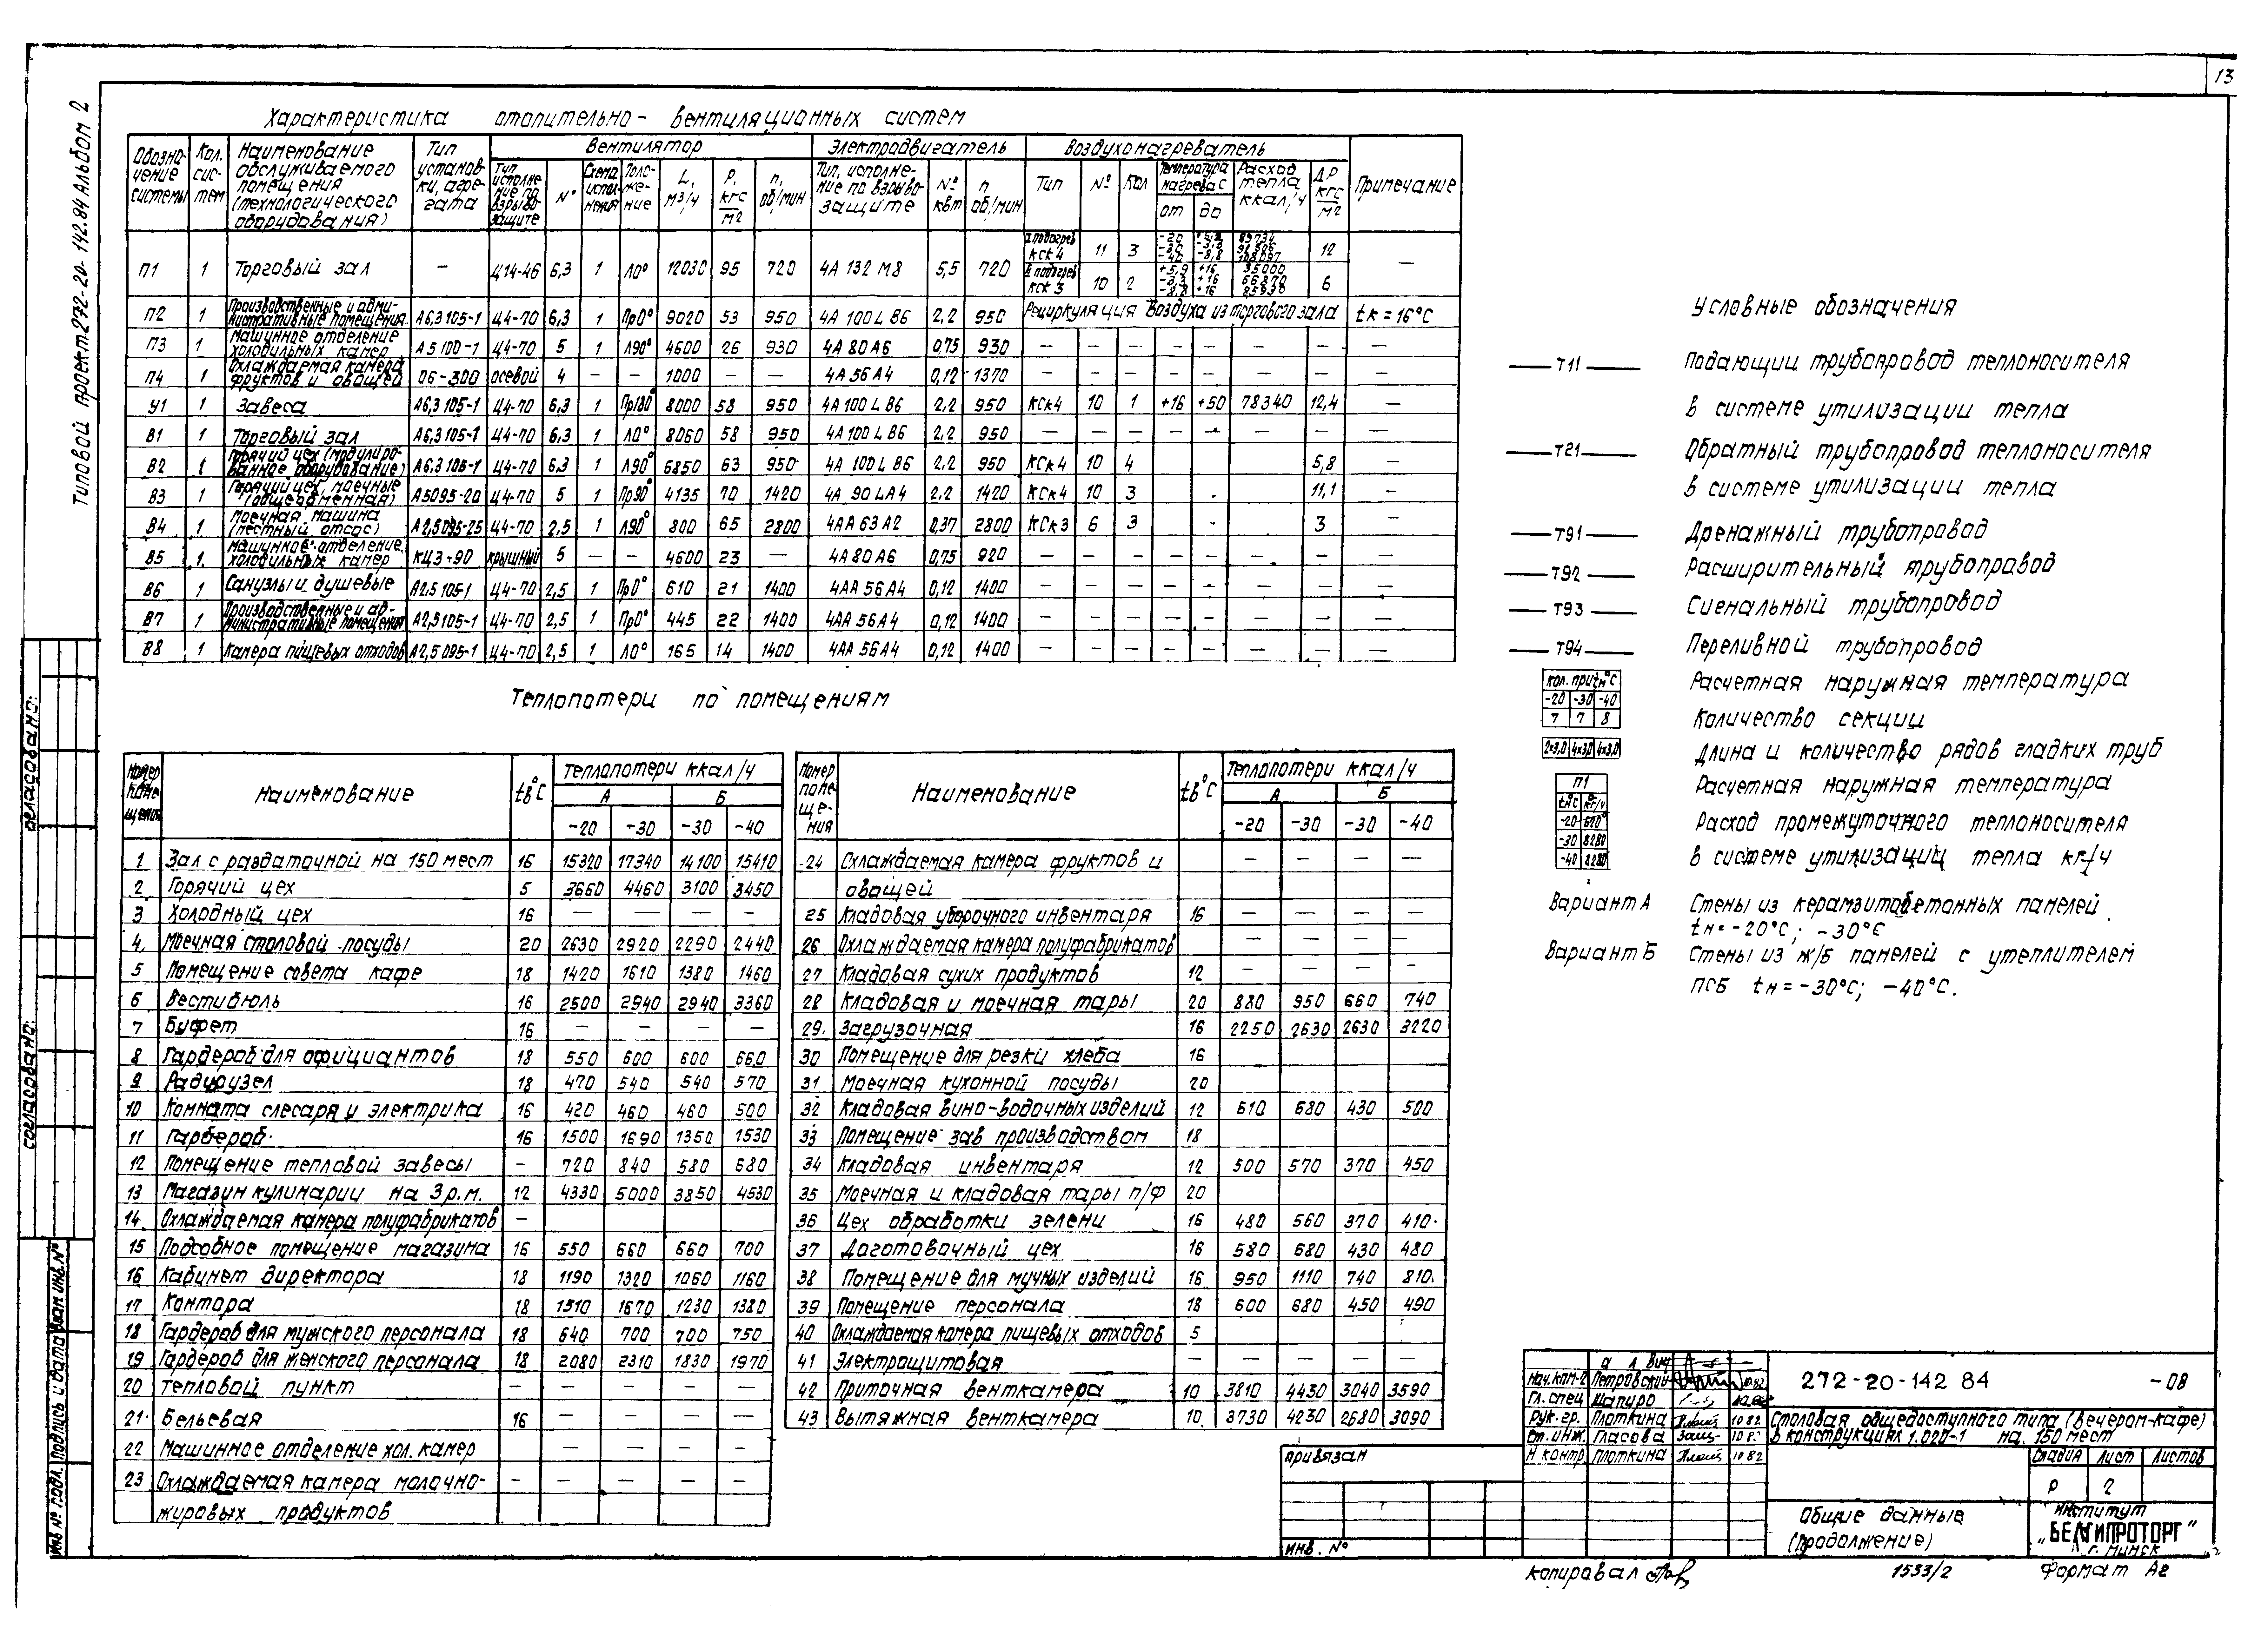 13
Типовой проект 272-20-142.84 Альбом 2
Характеристика отопительно-вентиляционных систем
Обозначение системы | Кол. систем | Наименование обслуживаемого помещения (технологического оборудования) | Тип установки, агрегата | Вентилятор | Электродвигатель | Воздухонагреватель | Примечание
Тип исполнение по взрывозащите | № | Схема исполнения | Положение | L, м3/ч | P, кгс/м2 | n, об/мин | Тип, исполнение по взрывозащите | № квт | n об/мин | Тип | № | Кол | Температура нагрева С от до | Расход тепла ккал/ч | ΔР кгс/м2
П1 1 Торговый зал — Ц14-46 6,3 1 Л0° 12030 95 720 4А 132 М8 5,5 720 —
I подогрев КСк4 11 3 -20 -30 -3,3 -40 -8,8 89734 98806 108097 12
II подогрев КСк3 10 2 +5,9 +16 -3,3 +16 -8,8 +16 35000 66870 85930 6
П2 1 Производственные и административные помещения А6,3 105-1 Ц4-70 6,3 1 Пр0° 9020 53 950 4А 100 L В6 2,2 950 Рециркуляция воздуха из торгового зала tк = 16°С
П3 1 Машинное отделение холодильных камер А 5 100-1 Ц4-70 5 1 Л90° 4600 26 930 4А 80 А6 0,75 930 — — — — — — — —
П4 1 Охлаждаемая камера фруктов и овощей 06-300 осевой 4 — — 1000 — — 4А 56 А4 0,12 1370 — — — — — — — —
У1 1 Завеса А6,3 105-1 Ц4-70 6,3 1 Пр180° 8000 58 950 4А 100 L В6 2,2 950 КСк4 10 1 +16 +50 78340 12,4 —
В1 1 Торговый зал А6,3 105-1 Ц4-70 6,3 1 Л0° 8060 58 950 4А 100 L В6 2,2 950 — — — — — — — —
В2 1 Горячий цех (модулированное оборудование) А6,3 105-1 Ц4-70 6,3 1 Л90° 6850 63 950 4А 100 L В6 2,2 950 КСк4 10 4 5,8 —
В3 1 Горячий цех, моечные (общеобменная) А5095-20 Ц4-70 5 1 Пр90° 4135 70 1420 4А 90 LА4 2,2 1420 КСк4 10 3 11,1 —
В4 1 Моечная машина (местный отсос) А2,5 095-25 Ц4-70 2,5 1 Л90° 800 65 2800 4АА 63 А2 0,37 2800 КСк3 6 3 3 —
В5 1 Машинное отделение холодильных камер КЦ3-90 крышный 5 — — 4600 23 — 4А 80 А6 0,75 920 — — — — — — — —
В6 1 Санузлы и душевые А2,5 105-1 Ц4-70 2,5 1 Пр0° 610 21 1400 4АА 56 А4 0,12 1400 — — — — — — — —
В7 1 Производственные и административные помещения А2,5 105-1 Ц4-70 2,5 1 Пр0° 445 22 1400 4АА 56 А4 0,12 1400 — — — — — — — —
В8 1 Камера пищевых отходов А2,5 095-1 Ц4-70 2,5 1 Л0° 165 14 1400 4АА 56 А4 0,12 1400 — — — — — — — —
Теплопотери по помещениям
Номер помещения | Наименование | tв°С | Теплопотери ккал/ч
А Б
-20 -30 -30 -40
1 Зал с раздаточной на 150 мест 16 15320 17340 14100 15410
2 Горячий цех 5 3660 4460 3100 3450
3 Холодный цех 16 — — — —
4. Моечная столовой посуды 20 2630 2920 2290 2440
5 Помещение совета кафе 18 1420 1610 1380 1460
6 Вестибюль 16 2500 2940 2940 3360
7 Буфет 16 — — — —
8 Гардероб для официантов 18 550 600 600 660
9 Радиоузел 18 470 540 540 570
10 Комната слесаря и электрика 16 420 460 460 500
11 Гардероб 16 1500 1690 1350 1530
12 Помещение тепловой завесы - 720 840 580 680
13 Магазин кулинарии на 3 р.м. 12 4330 5000 3850 4530
14 Охлаждаемая камера полуфабрикатов -
15 Подсобное помещение магазина 16 550 660 660 700
16 Кабинет директора 18 1190 1320 1060 1160
17 Контора 18 1510 1670 1230 1380
18 Гардероб для мужского персонала 18 640 700 700 750
19 Гардероб для женского персонала 18 2080 2310 1830 1970
20 Тепловой пункт — — — — —
21 Бельевая 16 — — — —
22 Машинное отделение хол. камер — — — —
23 Охлаждаемая камера молочно- — — — — —
жировых продуктов
Номер помещения | Наименование | tв°С | Теплопотери ккал/ч
А Б
-20 -30 -30 -40
24 Охлаждаемая камера фруктов и — — — —
овощей
25 Кладовая уборочного инвентаря 16 — — — —
26 Охлаждаемая камера полуфабрикатов — — — —
27 Кладовая сухих продуктов 12 — — — —
28 Кладовая и моечная тары 20 880 950 660 740
29. Загрузочная 16 2250 2630 2630 3220
30 Помещение для резки хлеба 16
31 Моечная кухонной посуды 20
32 Кладовая вино-водочных изделий 12 610 680 430 500
33 Помещение зав производством 18
34 Кладовая инвентаря 12 500 570 370 450
35 Моечная и кладовая тары п/ф 20
36 Цех обработки зелени 16 480 560 370 410
37 Доготовочный цех 16 580 680 430 480
38 Помещение для мучных изделий 16 950 1110 740 810
39 Помещение персонала 18 600 680 450 490
40 Охлаждаемая камера пищевых отходов 5
41 Электрощитовая — — — — —
42 Приточная венткамера 10 3810 4430 3040 3590
43 Вытяжная венткамера 10 3730 4230 2680 3090
Условные обозначения
Т11 Подающии трубопровод теплоносителя
в системе утилизации тепла
Т21 Обратный трубопровод теплоносителя
в системе утилизации тепла
Т91 Дренажный трубопровод
Т92 Расширительный трубопровод
Т93 Сигнальный трубопровод
Т94 Переливной трубопровод
кол. при tн°С
-20 -30 -40 Расчетная наружная температура
7 7 8 Количество секции
2х3,0 4х3,0 4х3,0 Длина и количество рядов гладких труб
П1 Расчетная наружная температура
tн°С кг/ч
-20 Расход промежуточного теплоносителя
-30 8280
-40 8280 в системе утилизации тепла кг/ч
Вариант А Стены из керамзитобетонных панелей
tн = -20°С; -30°С
Вариант Б Стены из ж/б панелей с утеплителем
ПСБ tн = -30°С; -40°С.
согласовано:
согласовано:
Инв № подл. Подпись и дата Взам инв. №
Нач. КПМ-2 Петровский 10.82
Гл. спец Шапиро
Рук. гр. Плоткина 10 82
Ст. инж. Гласова
Н контр. Плоткина 10 82
272-20-142 84 -08
Столовая общедоступного типа (вечером-кафе)
в конструкциях 1.020-1 на 150 мест
Стадия Лист Листов
Р 2
Общие данные
(продолжение)
Институт
„БЕЛГИПРОТОРГ"
г. Минск
привязан
инв. №
Копировал
1533/2
Формат А2